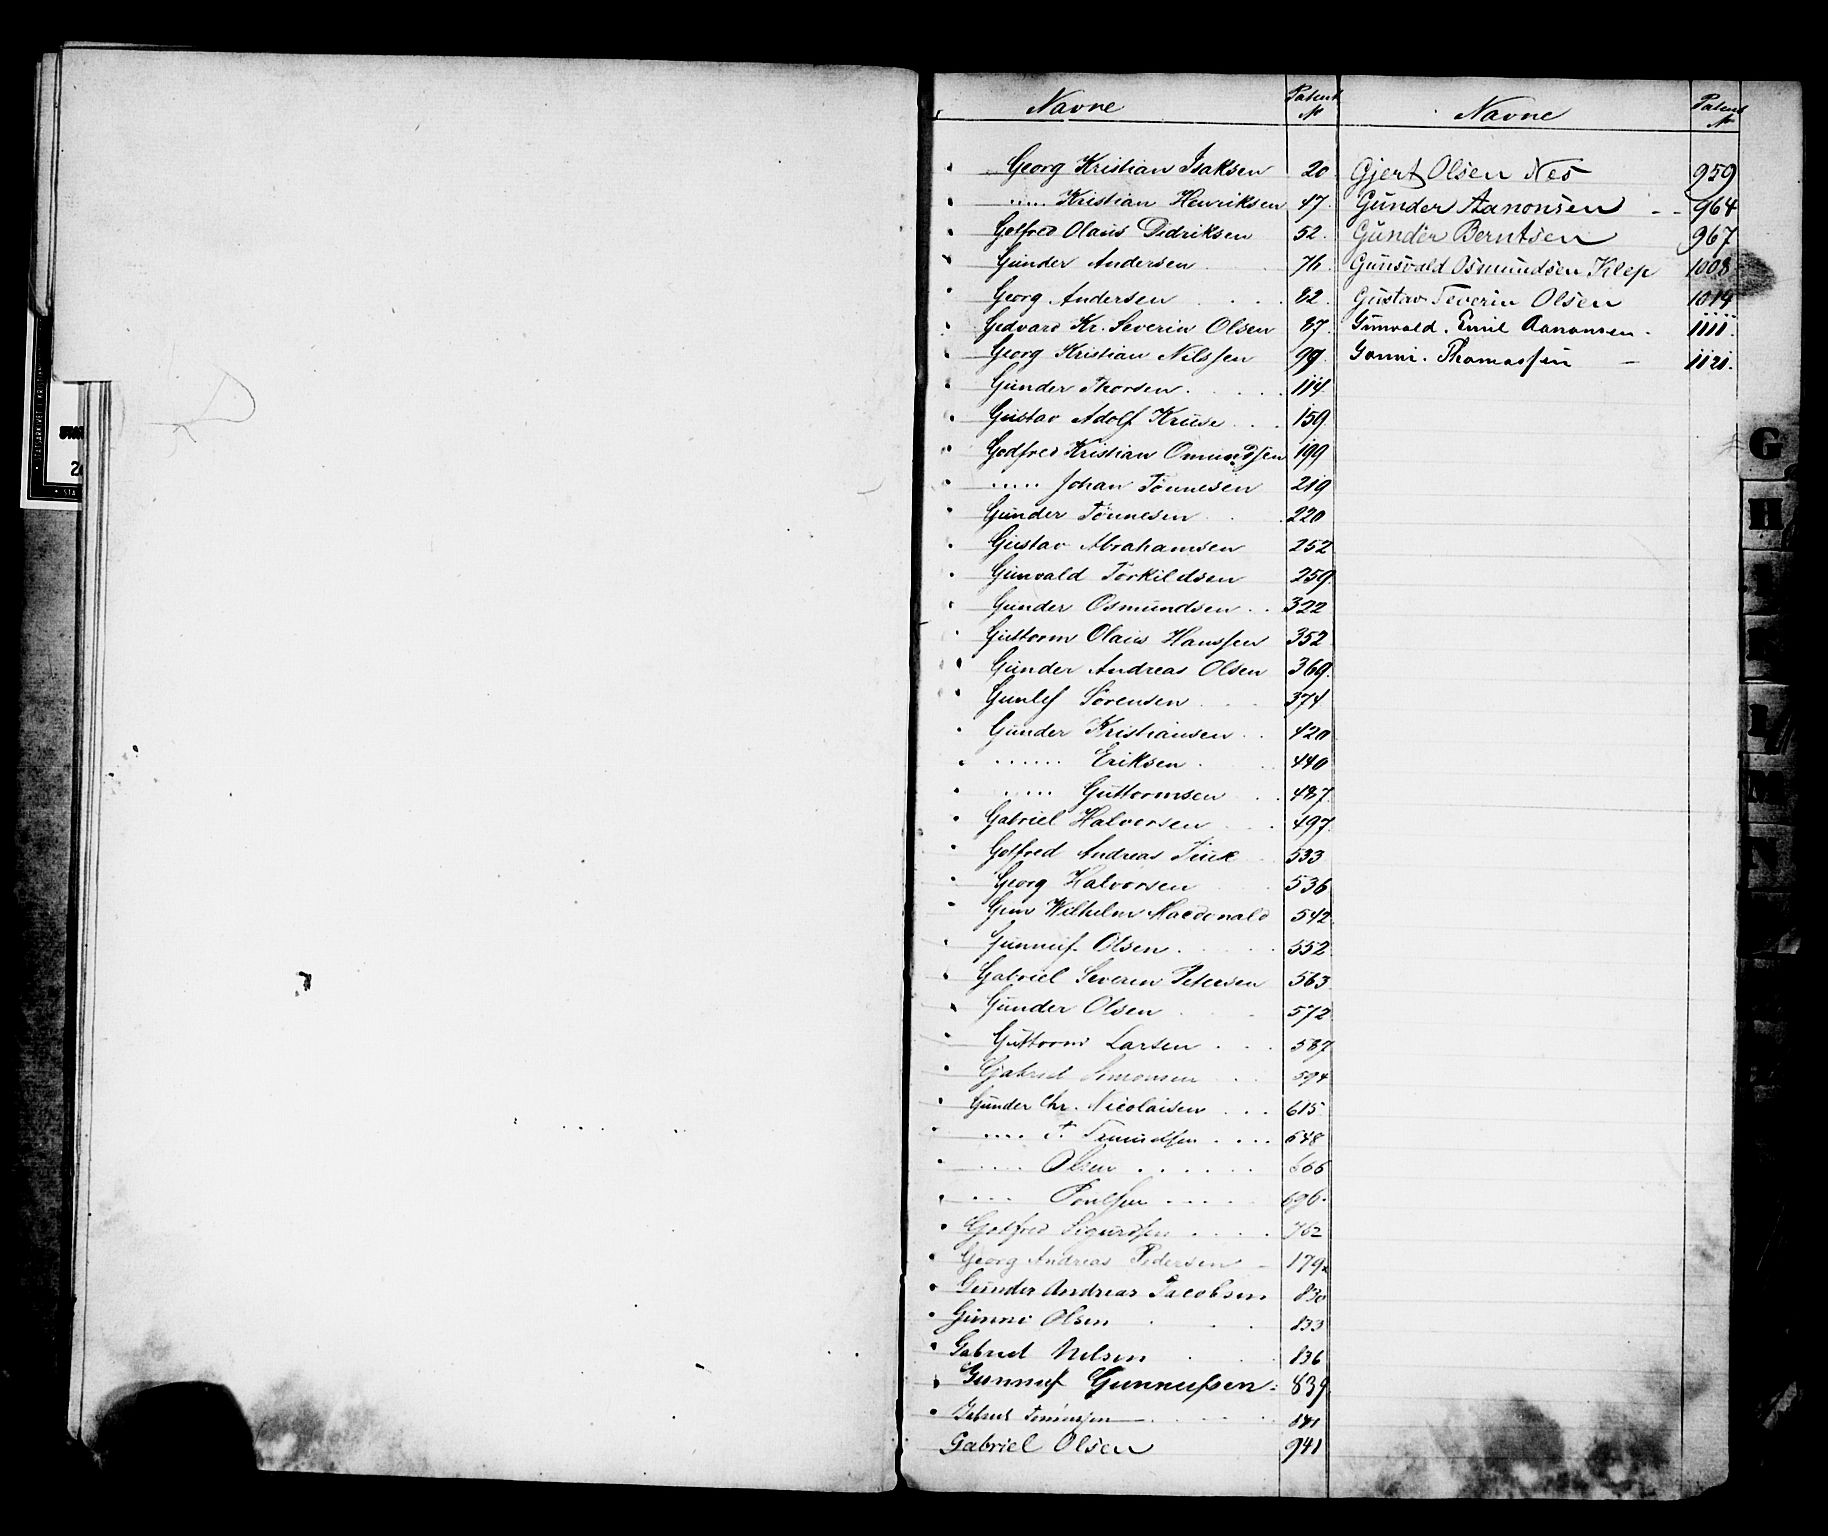 Navne Patent No
Georg Kristian Isaksen 20
..... Kristian Henriksen 47
Gotfred Olaus Didriksen 52.
Gunder Andersen 76.
Georg Andersen 82.
Gedvard Kr. Severin Olsen 87.
Georg Kristian Nilssen 99.
Gunder Thorsen 114.
Gustav Adolf Kruse 159.
Godfred Kristian Omundsen 199
..... Johan Tønnesen 219
Gunder Tønnesen 220
Gustav Abrahamsen 252
Gunvald Torkildsen 259.
Gunder Osmundsen 322
Guttorm Olaus Hanssen 352
Gunder Andreas Olsen 369.
Gunlef Sørensen 374
Gunder Kristiansen 420
...... Eriksen 440
..... Guttormsen 487.
Gabriel Halvorsen 497.
Gotfred Andreas 533
Georg Halvorsen 536
Wilhelm Macdonald 542
Gunnuf Olsen 552
Gabriel Severin Petersen 563
Gunder Olsen 572
Guttorm Larsen 587
Gabriel Simonsen 594
Gunder Chr. Nicolaisen 615
.... T. 648
..... Olsen 666
... Poulsen 696.
Gotfred Sigurdsen 762
Georg Andreas Pedersen 179
Gunder Andreas Jacobsen 830
Gunni Olsen 833
Gabriel Nilsen 836
Gunnuf Gunnufsen 839.
841
Gabriel Olsen 941
Navne Patent No
Gjert Olsen Nes 959
Gunder Aanonsen 964
Gunder Berntsen 967
Gunsvald Osmundsen Klep 1008
Gustav Severin Olsen 1014
Gunvald. Emil Aanonsen. 1111.
Gunni. Thomassen 1121.
G
H